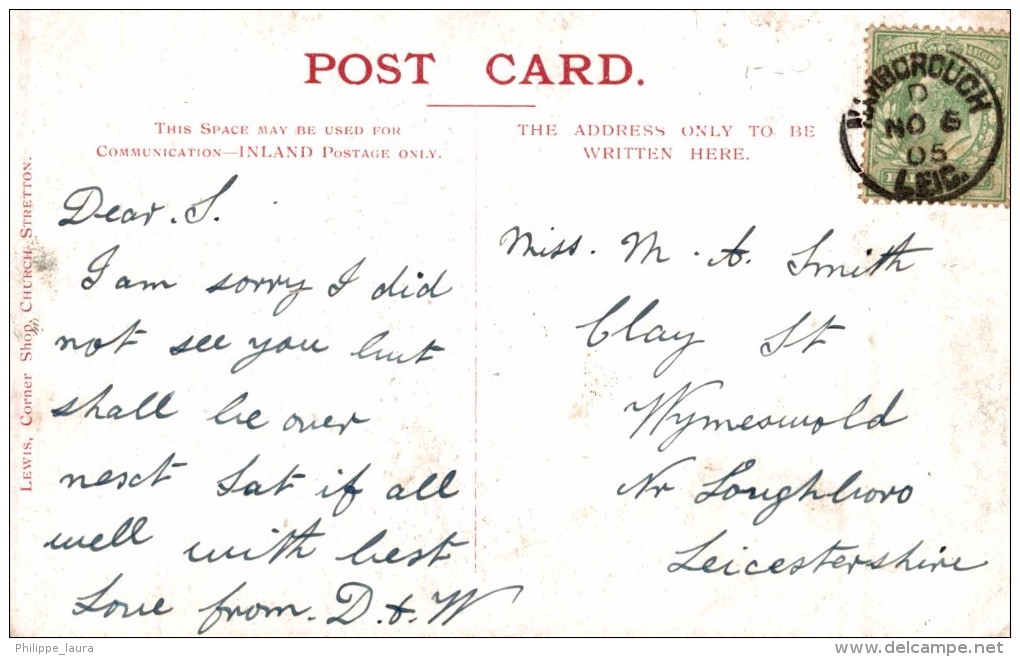 POST CARD.
THIS SPACE MAY BE USED FOR
COMMUNICATION—INLAND POSTAGE ONLY.
THE ADDRESS ONLY TO BE
WRITTEN HERE.
LEWIS, CORNER SHOP, CHURCH STRETTON.
Dear. S.
I am sorry I did
not see you but
shall be over
next Sat if all
well with best
Love from. D & W
Miss. M. A. Smith
Clay St
Wymeswold
Nr Loughboro
Leicestershire
NARBOROUGH
D
NO 6
05
LEIC.
POSTAGE & REVENUE
Philippe_laura
delcampe.net